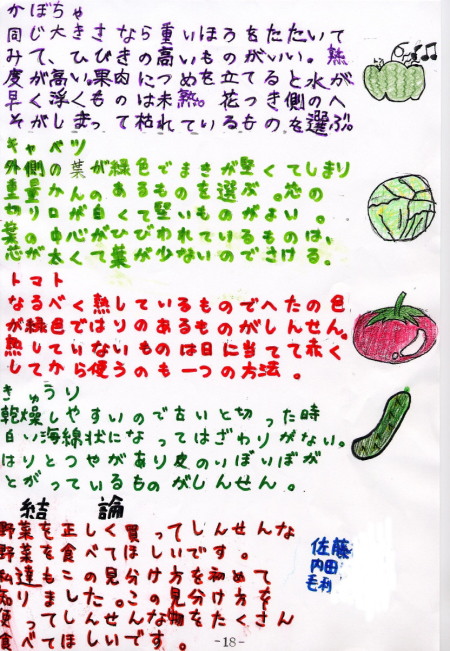 かぼちゃ
同じ大きさなら重いほうをたたいて
みて、ひびきの高いものがいい。熟
度が高い。果肉につめを立てると水が
早く浮くものは未熟。花つき側のへ
そがしまって枯れているものを選ぶ。
キャベツ
外側の葉が緑色でまきが堅くてしまり
重量かんのあるものを選ぶ。芯の
切り口が白くて堅いものがよい。
葉の中心がひびわれているものは、
芯が太くて葉が少ないのでさける。
トマト
なるべく熟しているものでへたの色
が緑色ではりのあるものがしんせん。
熟していないものは日に当てて赤く
してから使うのも一つの方法。
きゅうり
乾燥しやすいので古いと切った時
白い海綿状になってはざわりがない。
はりとつやがあり皮のいぼいぼが
とがっているものがしんせん。
結論
野菜を正しく買ってしんせんな
野菜を食べてほしいです。
私達もこの見分け方を初めて
知りました。この見分け方を
使ってしんせんな物をたくさん
食べてほしいです。
佐藤
内田
毛利
-18-